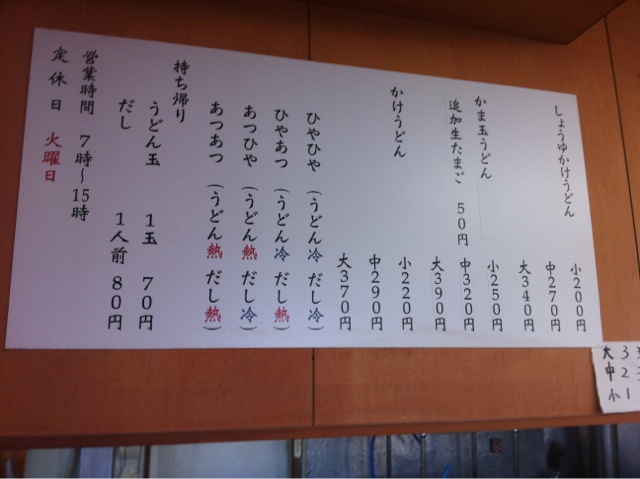 しょうゆかけうどん
小200円
中270円
大340円
かま玉うどん
小250円
中320円
大390円
追加生たまご 50円
かけうどん
小220円
中290円
大370円
ひやひや (うどん冷 だし冷)
ひやあつ (うどん冷 だし熱)
あつひや (うどん熱 だし冷)
あつあつ (うどん熱 だし熱)
持ち帰り
うどん玉 1玉 70円
だし 1人前 80円
営業時間 7時〜15時
定休日 火曜日
大 3
中 2
小 1